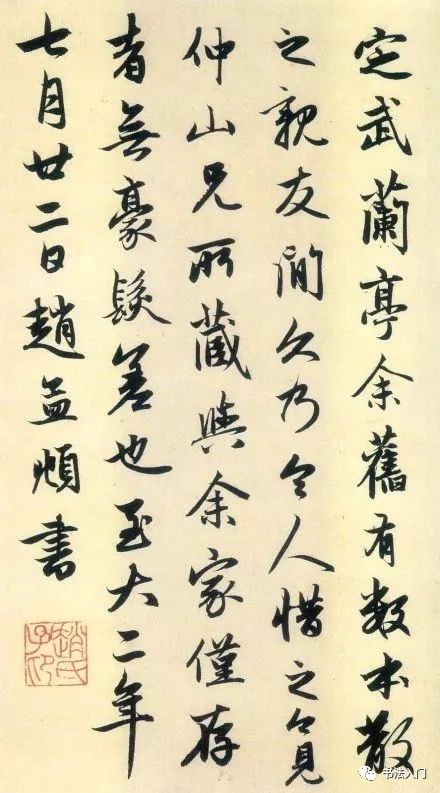 定武蘭亭余舊有數本散
之親友間久乃令人惜之今見
仲山兄所藏與余家僅存
者無豪髮差也至大二年
七月廿二日趙孟頫書
趙氏子昂
书法入门